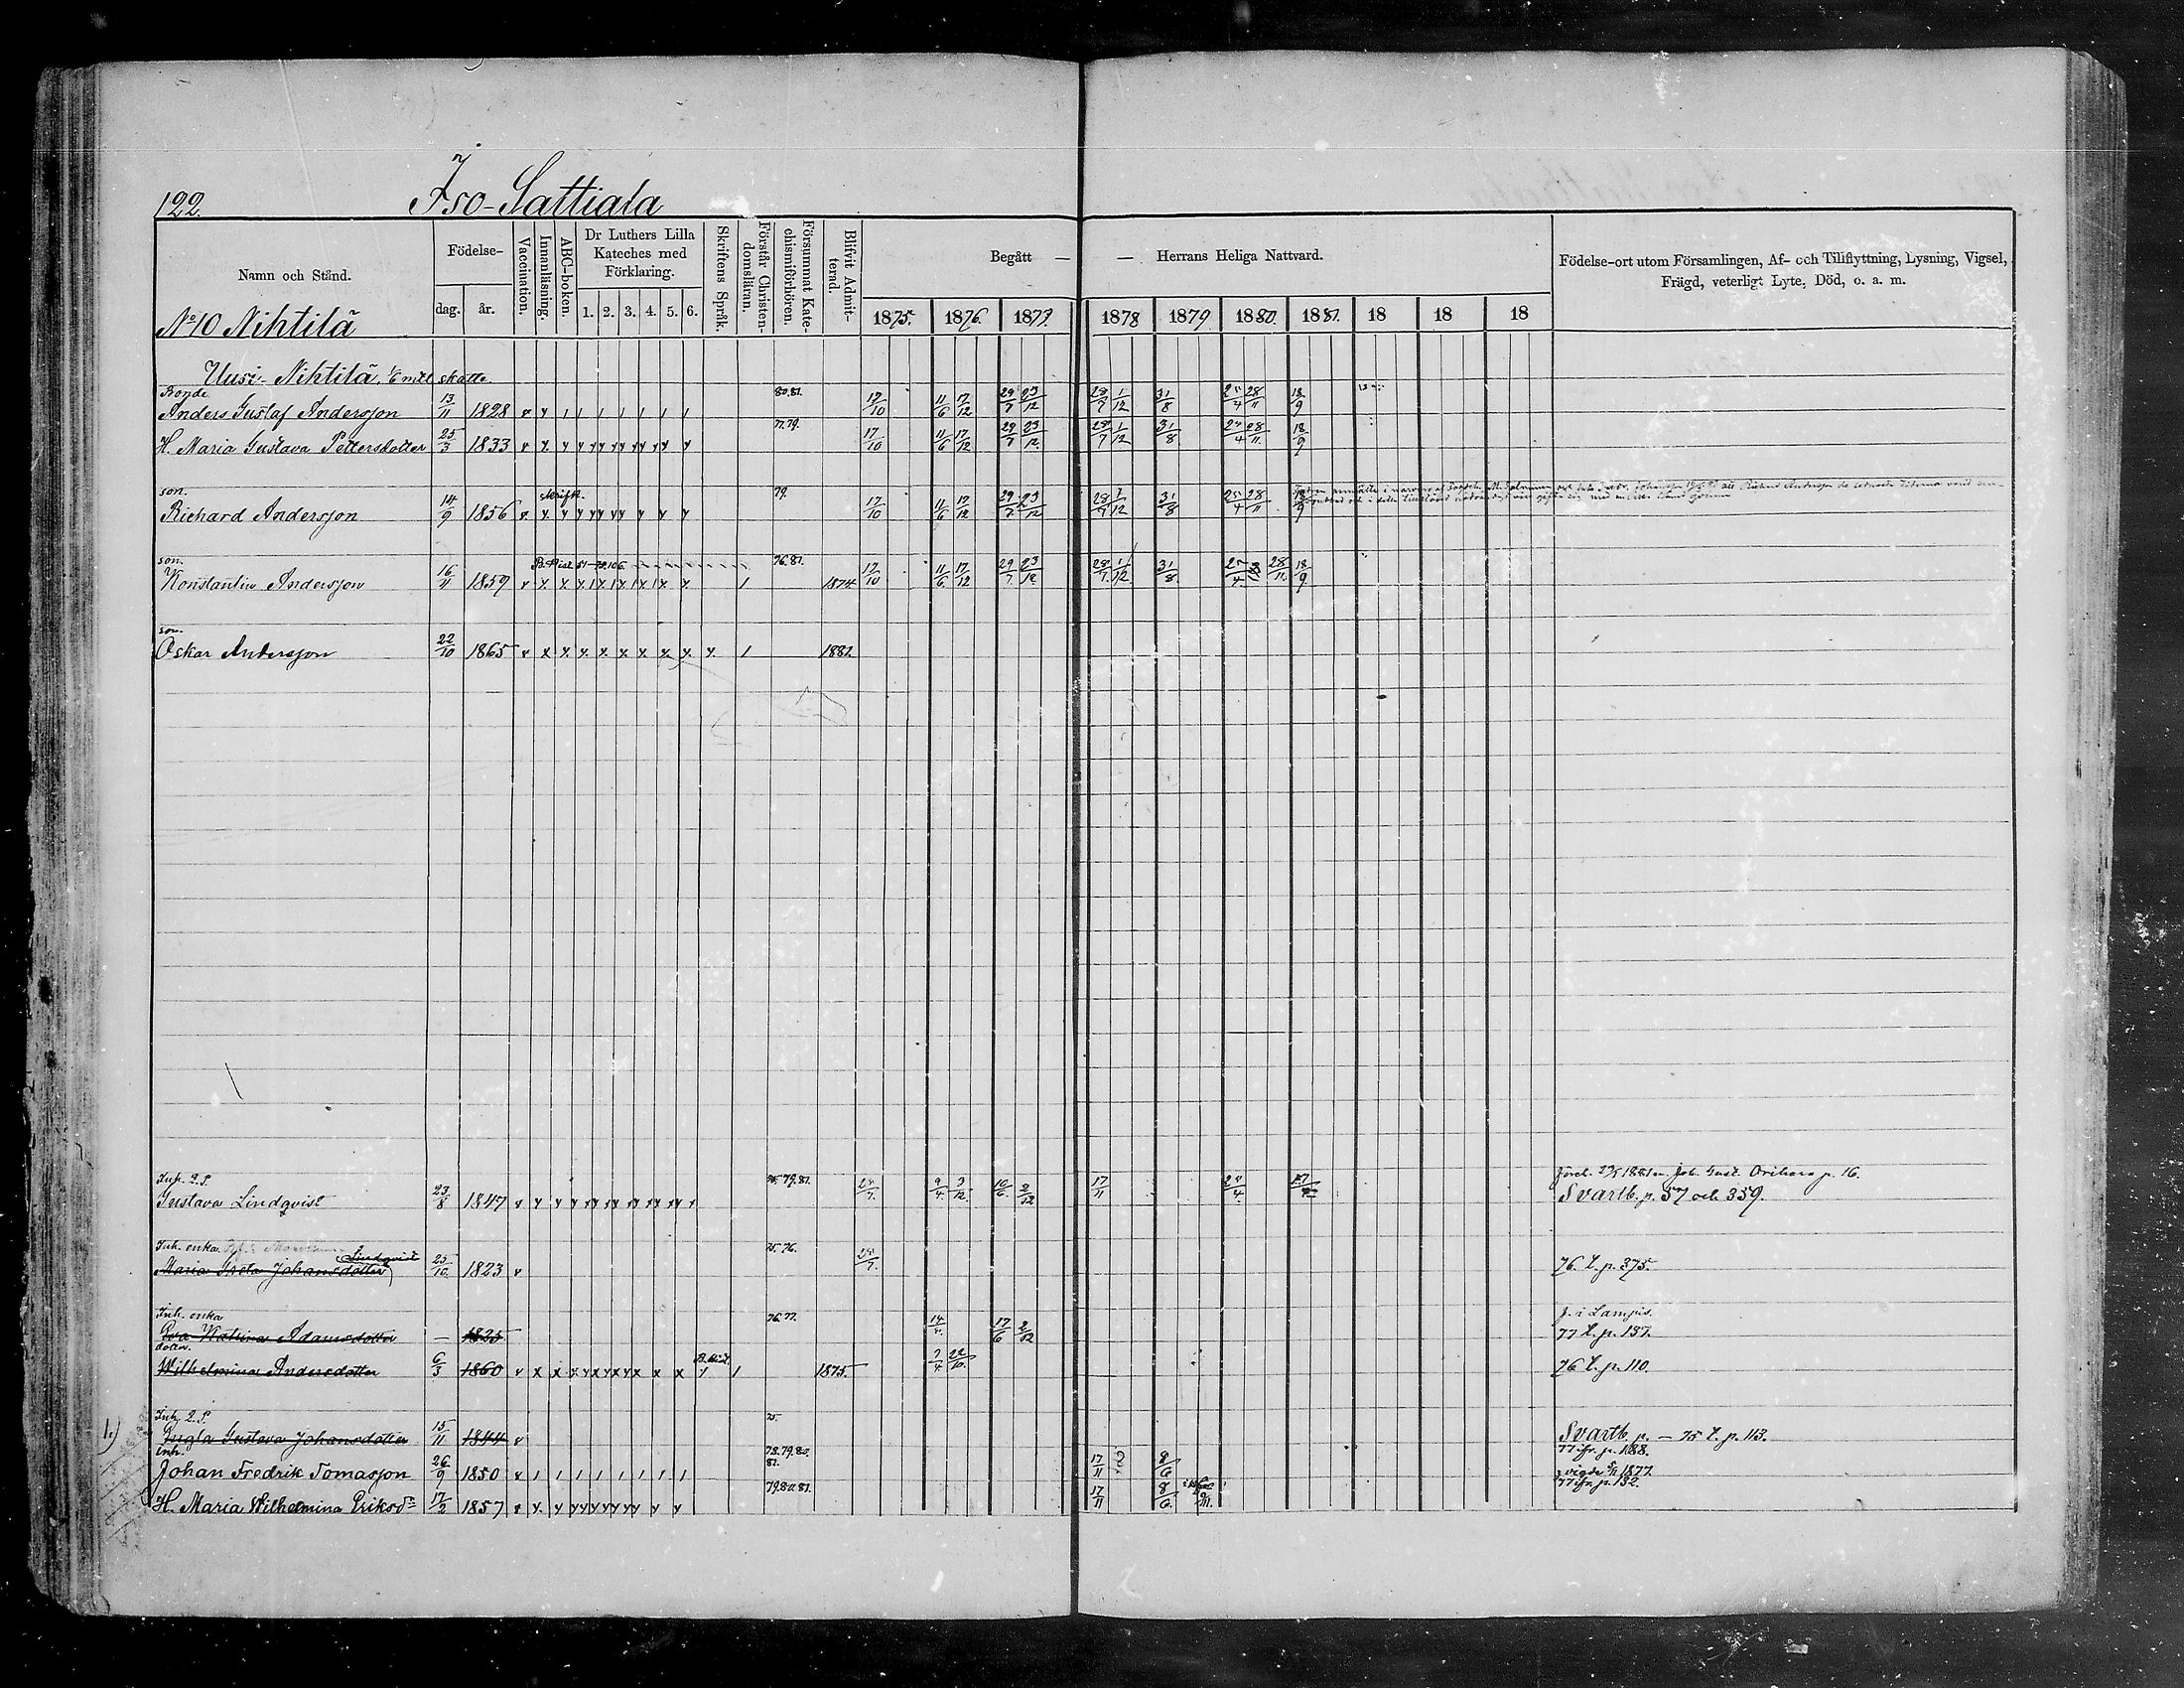 122. Iso-Sattiala
Namn och Stånd.
Födelse-
dag. år.
Vaccination.
Innanläsning.
ABC-boken.
Dr Luthers Lilla
Kateches med
Förklaring.
1. 2. 3. 4. 5. 6.
Skriftens Språk.
Förstår Christen-
domsläran.
Försummat Kate-
chismiförhören.
Blifvit Admit-
terad.
Begått — — Herrans Heliga Nattvard.
1875. 1876. 1877. 1878 1879 1880. 1881. 18 18 18
Födelse-ort utom Församlingen, Af- och Tillflyttning, Lysning, Vigsel,
Frägd, veterligt Lyte, Död, o. a. m.
No 10 Nihtilä
Uusi-Nihtilä, 1/6 mtl skatte.
Bonde 80.81.
Anders Gustaf Andersson 13/11 1828 17/10 11/6 17/12 29/7 23/12 28/7 1/12 31/8 25/4 28/11 18/9
77.79.
H. Maria Gustava Pettersdotter 25/3 1833 17/10 11/6 17/12 29/7 23/12 28/7 1/12 31/8 25/4 28/11 18/9
son. 79.
Richard Andersson 14/9 1856 17/10 11/6 17/12 29/7 23/12 28/7 1/12 31/8 25/4 28/11 18/9
son. 76.81.
Konstantin Andersson 16/11 1859 1874 17/10 11/6 17/12 29/7 23/12 28/7 1/12 31/8 25/4 28/11 18/9
son.
Oskar Andersson 22/10 1865 1881.
Inh. 79.81.
Gustava Lindqvist 23/8 1847 17/11 Svartb. p. 57 och 359.
Inh. enka 75.76.
Maria Greta Johansdotter Lindqvist 25/10 1823 76. t. p. 375.
Inh. enka 76.77. f. i Lampis.
Eva Katrina Adamsdotter — 1825 17/6 2/12 77 t. p. 137.
dotter.
Wilhelmina Andersdotter 6/3 1860 1875. 76 t. p. 110.
Inh. 75.
Ingla Gustava Johansdotter 15/11 1844 Svartb. p. — 75 t. p. 113.
inh. 78.79.80. 77 ifr. p. 188.
81.
Johan Fredrik Tomasson 26/9 1850 17/11 8/6 vigde 1877.
79.80.81. 77 ifr. p. 132.
H. Maria Wilhelmina Eriksdr 17/2 1857 17/11 8/6